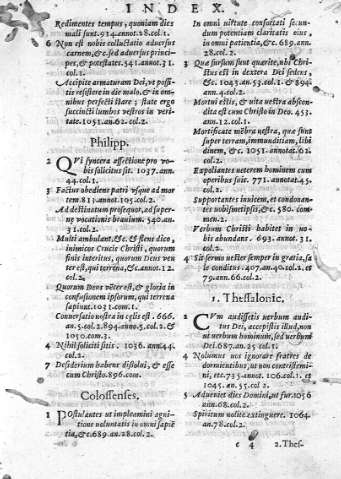 INDEX.
Redimentes tempus, quoniam dies
mali sunt. 914. annot. 28. col. 1.
6 Non est nobis colluctatio adversus
carnem, &c. sed adversus princi-
pes, & potestates. 541. annot. 31.
col. 1.
Accipite armaturam Dei, ut possi-
tis resistere in die malo, & in om-
nibus perfecti stare; state ergo
succincti lumbos vestros in veri-
tate. 1051. an. 62. col. 2.
Philipp.
2 Qui syncera affectione pro vo-
bis sollicitus sit. 1037. ann.
44. col. 1.
3 Factus obediens patri usque ad mor
tem. 813. annot. 105. col. 2.
Ad destinatum prosequor, ad super-
næ vocationis bravium. 540. an.
31. col. 1.
Multi ambulant, &c. & flens dico,
inimicos Crucis Christi, quorum
finis interitus, quorum Deus ven
ter est, qui terrena, &c. annot. 12.
col. 2,
Quorum Deus venter est, & gloria in
confusionem ipsorum, qui terrena
sapiunt. 1031. com. 1.
Conversatio nostra in cælis est. 666.
an. 5. col. 2. 894. anno. 5. col. 2. &
1050. com. 3.
4 Nihil soliciti sitis. 1036. ann. 44.
col. 2.
7 Desiderium habens dissolui, & esse
cum Christo. 896. com.
Colossenses.
1 Postulantes ut impleamini agni-
tione voluntatis in omni sapiē
tia, &c. 689. an. 28. col. 2.
In omni virtute confortati secun-
dum potentiam claritatis eius
in omni patientia, &c. 689. ann.
28. col. 2.
3 Quæ sursum sunt quærite, ubi Chri-
stus est in dextera Dei sedens,
&c. 1043. an. 53. col. 1. & 894.
ann. 4. col. 2.
Mortui estis, & vita vestra abscon-
dita est cum Christo in Deo. 453.
ann. 12. col. 1.
Mortificate mēbra vestra, quæ sunt
super terram, immunditiam, libi
dinem, &c. 1051. annotat. 62.
col. 2.
Expoliantes veterem hominem cum
operibus suis. 771. annotat. 45,
col. 2.
Supportantes invicem, et condonan-
tes vobismetipsis, &c. 580. com-
men. 2.
Verbum Christi habitet in vo-
bis abundanter. 693. annot. 31.
col. 2.
4 Sit sermo vester semper in gratia, sa
le conditus. 407. an. 40. col. 2. et
79. ann. 66. col. 2.
1. Thessalonic,
2 Cum audissetis verbum audi
tus Dei, accepistis illud, non
ut verbum hominum, sed verbum
Dei. 687. an. 25. col. 1.
4 Nolumus vos ignorare fratres de
dormientibus, ut non contristemi-
ni, etc. 735. annot. 106. col. 1. et
1045. an. 55. col. 2.
5 Adveniet dies Domini, ut fur. 1056
ann. 68. col. 2.
Spiritum nolite extinguere. 1064.
an. 78. col. 2.
e 4 2. Thes-